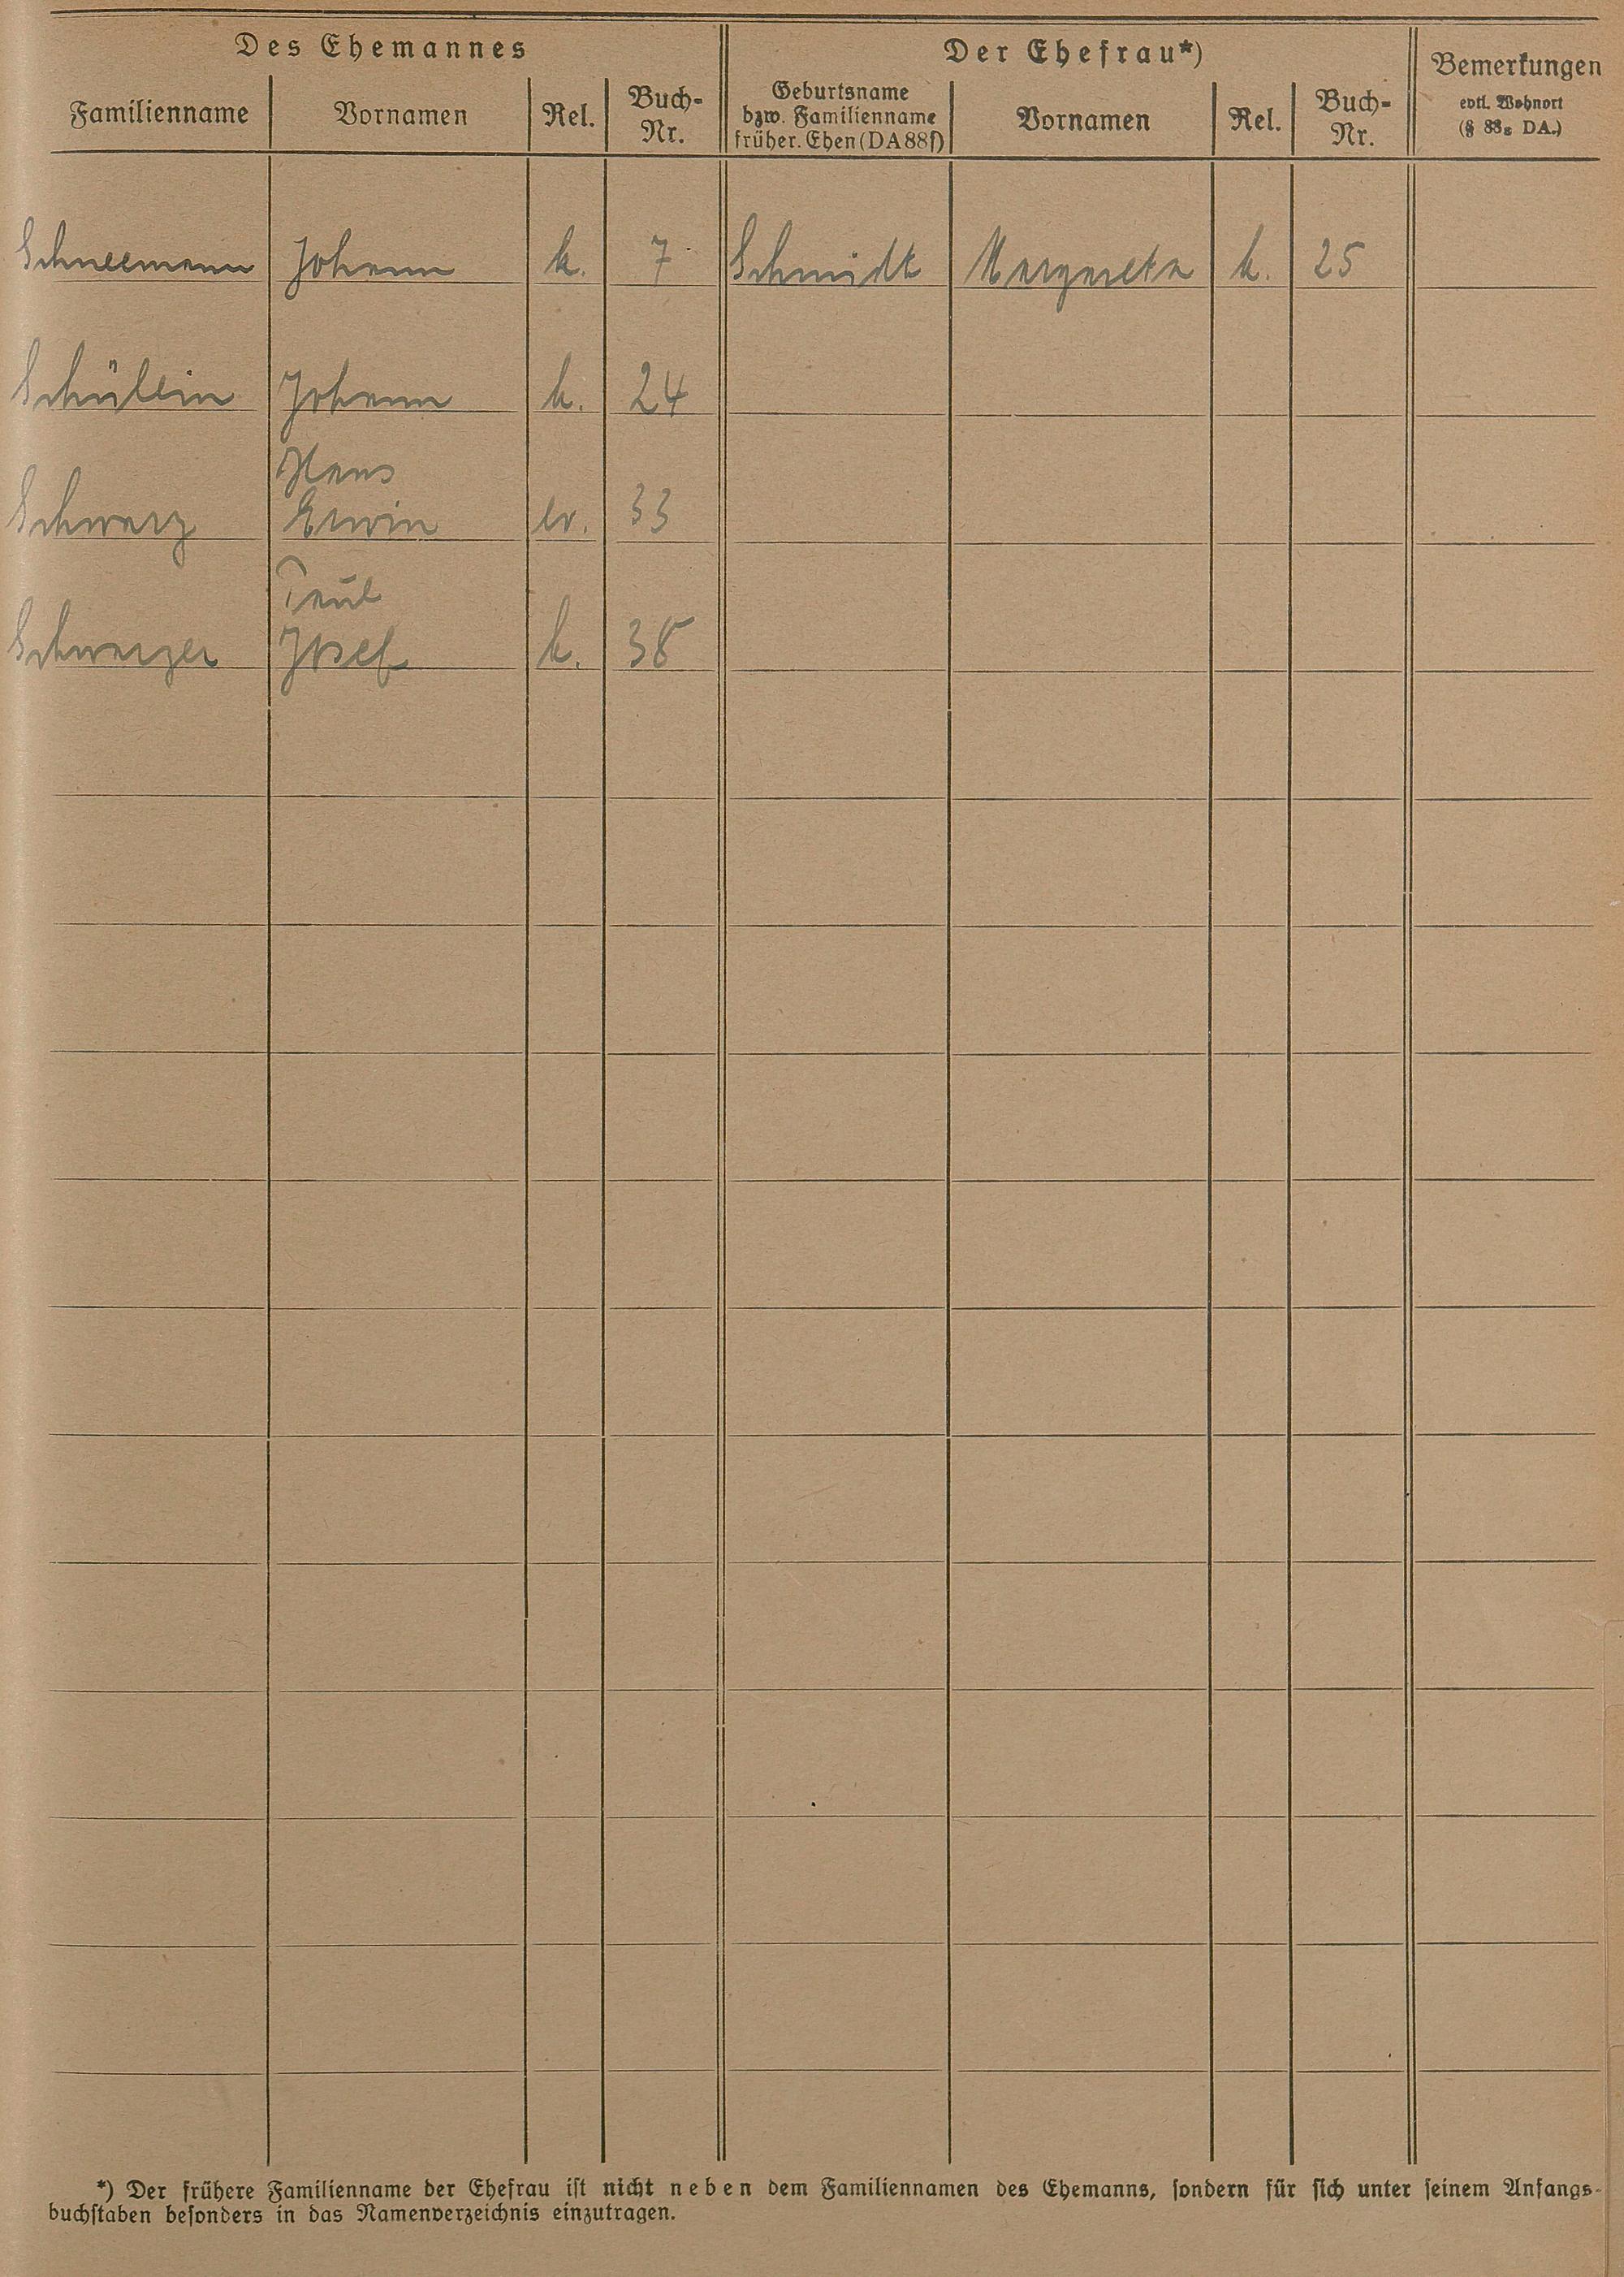 Des Ehemannes
Der Ehefrau*)
Bemerkungen
evtl. Wohnort
(§ 88₅ DA.)
Familienname
Vornamen
Rel.
Buch-
Nr.
Geburtsname
bzw. Familienname
früher. Ehen (DA 88f)
Vornamen
Rel.
Buch-
Nr.
Schneemann Johann k. 7 Schmidt Margareta k. 25
Schüllein Johann k. 24
Hans
Schwarz Erwin ev. 33
Paul
Schwarzer Josef k. 38
*) Der frühere Familienname der Ehefrau ist nicht neben dem Familiennamen des Ehemanns, sondern für sich unter seinem Anfangs-
buchstaben besonders in das Namenverzeichnis einzutragen.